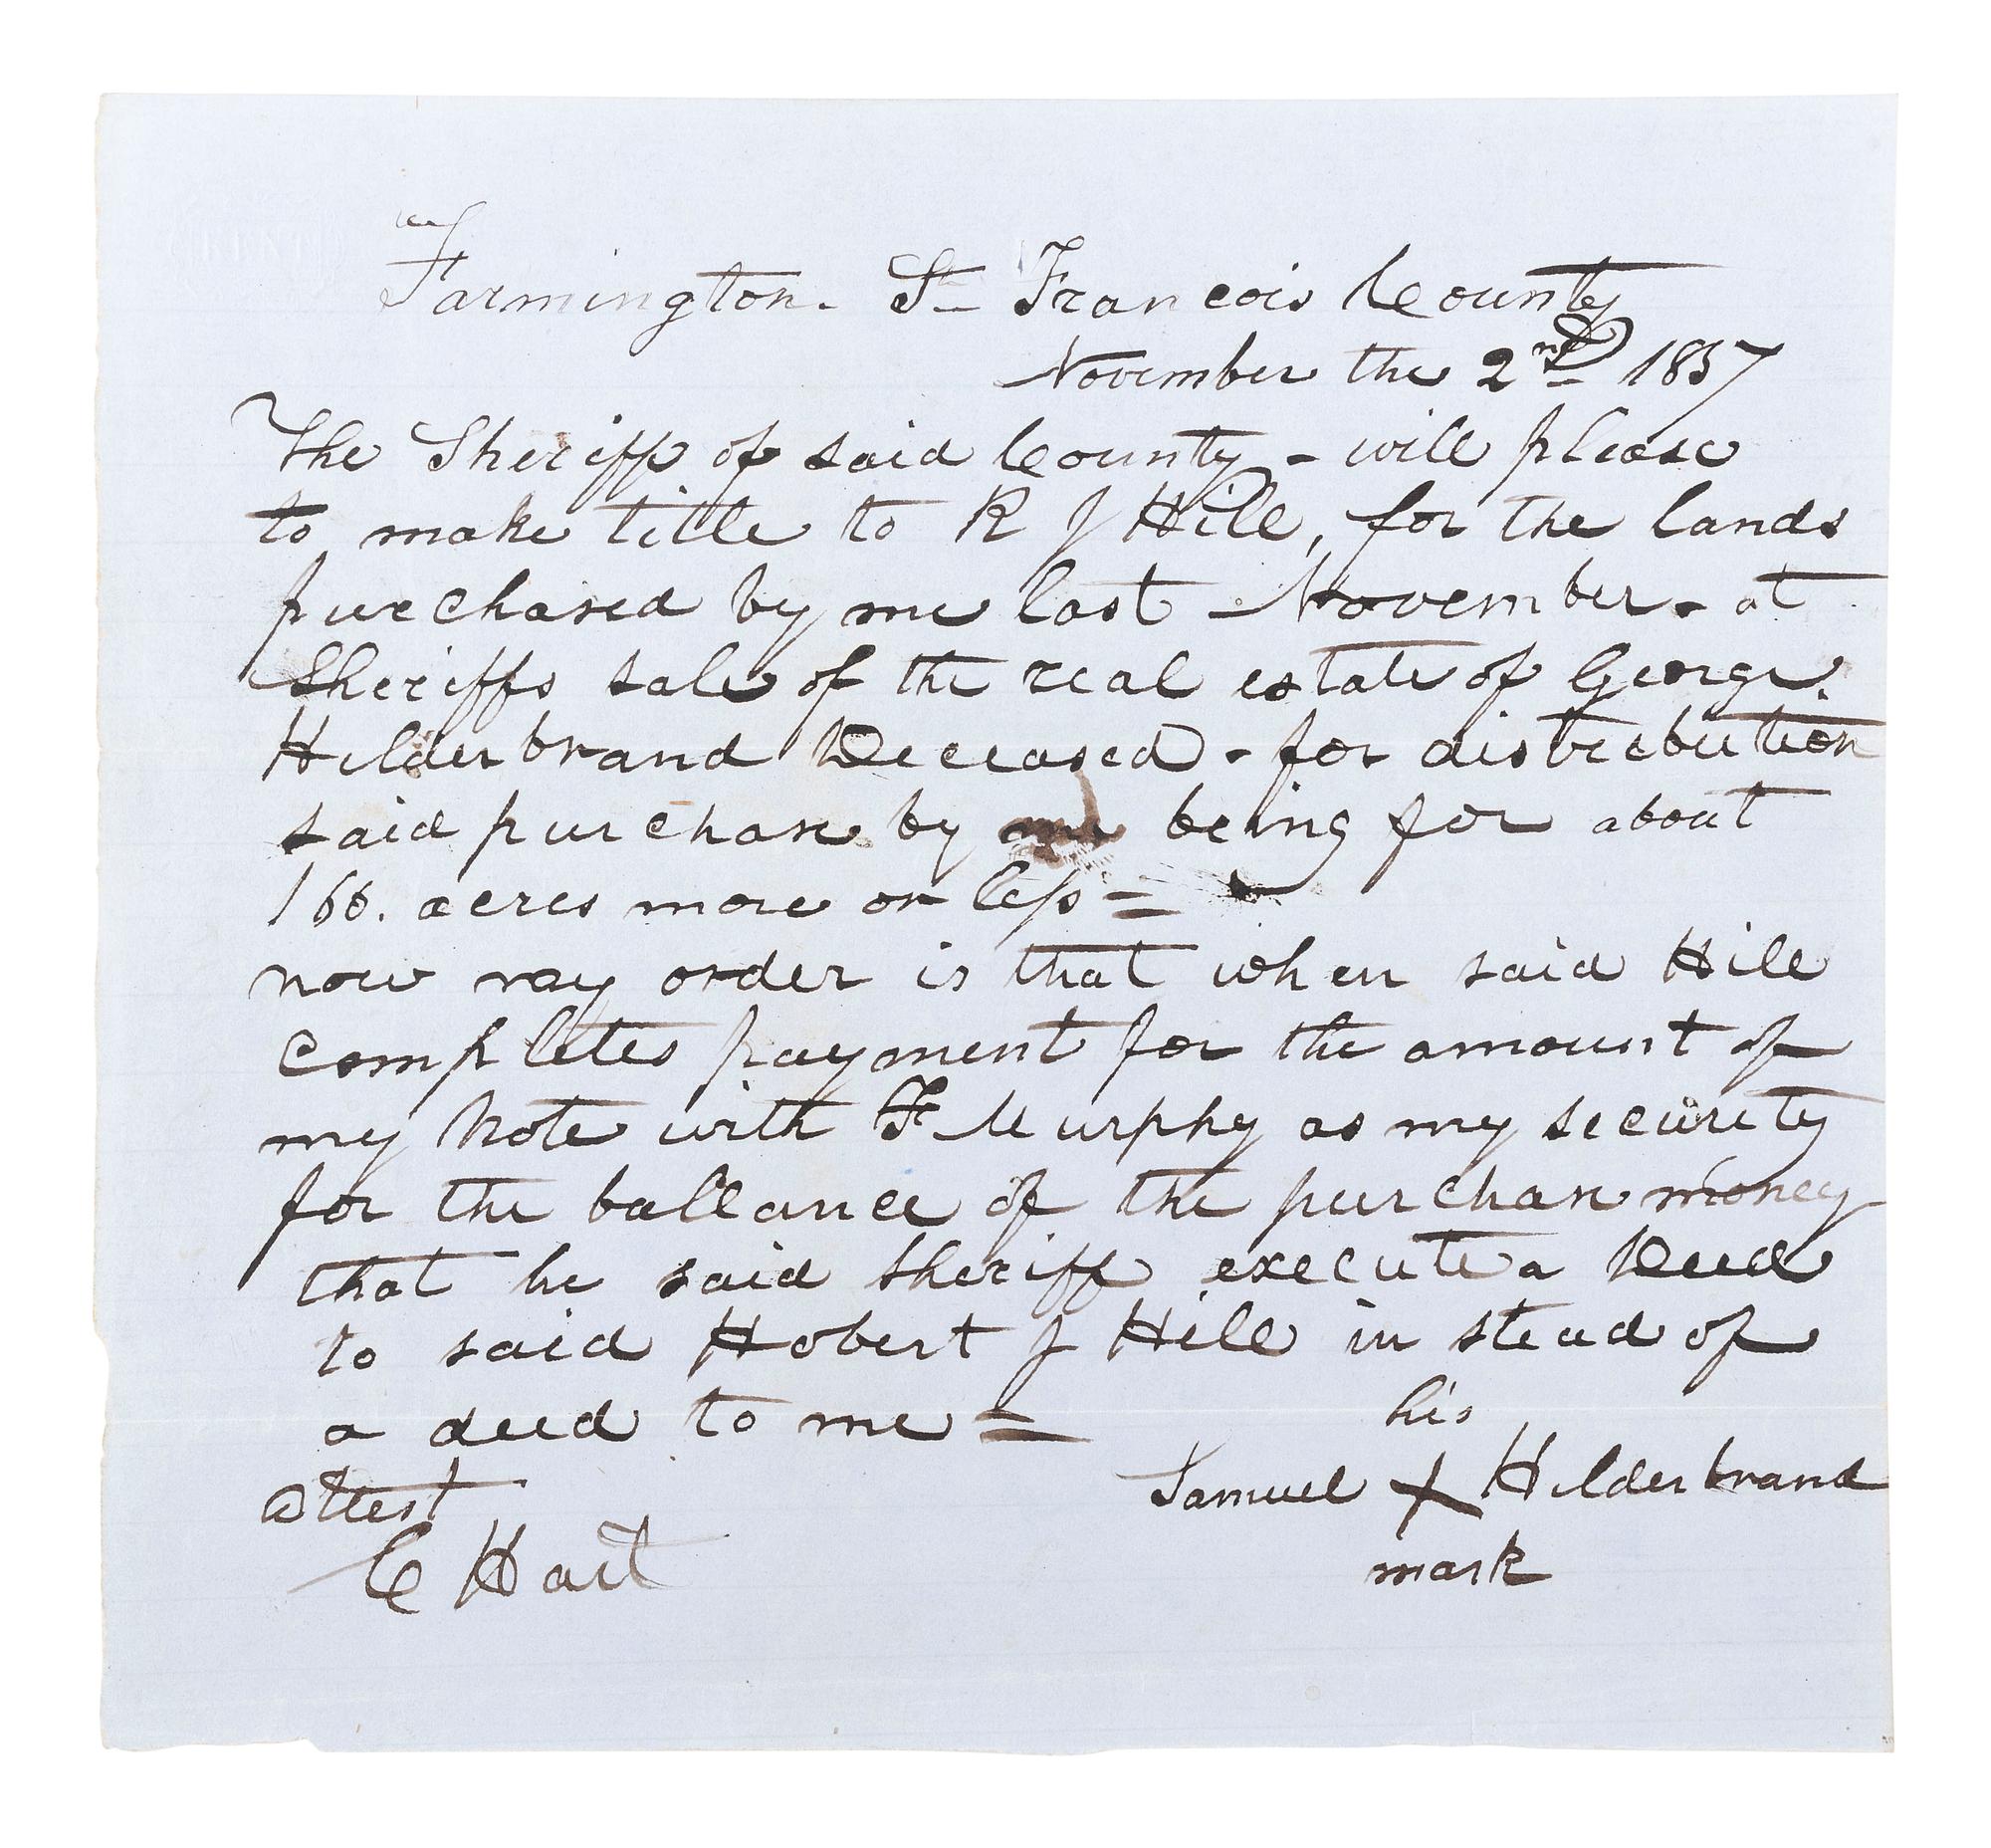 Farmington. St Francois County
November the 2nd 1857
The Sheriff of said County - will please
to make title to R J Hill, for the lands
purchased by me last November - at
Sheriffs sale of the real estate of George
Hilderbrand Deceased - for distribution
said purchase by me being for about
166. acres more or less =
now my order is that when said Hill
completes payment for the amount of
my Note with F Murphy as my security
for the ballance of the purchase money
that he said Sheriff execute a Deed
to said Robert J Hill in stead of
a deed to me =
his
attest Samuel X Hilderbrand
C Hart mark